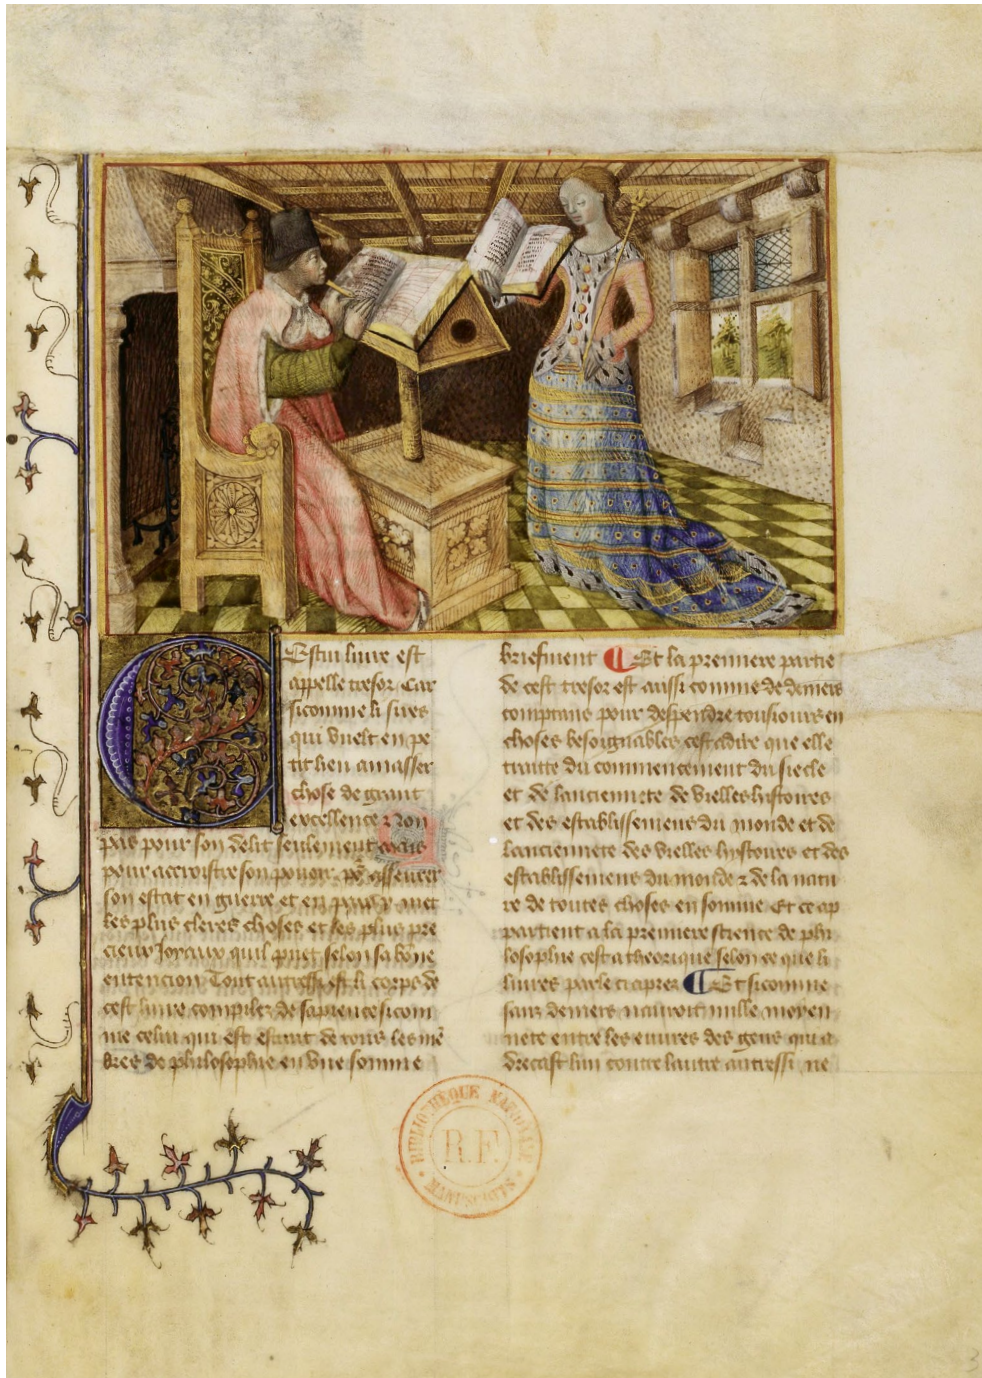 Cestui livre est
appelle tresor. Car
sicomme li sires
qui vuelt en pe
tit lieu amasser
chose de grant
excellence ⁊ Non
pas pour son delit seulement mais
pour accroistre son pouoir
son estat en guerre et en paix y met
les plus cleres choses et les plus pre
cieux Joyaux quil puet selon sa bone
entencion Tout aussi est li corps de
cest livre compilez de sapience sicom
me celui qui est estrait de tous les mē
bres de philosophie en une somme
briefment ¶ Et la premiere partie
de cest tresor est aussi comme de deniers
comptans pour despendre tousiours en
choses besoignables cest adire que elle
traitte du commencement du siecle
et de lanciennete de vielles histoires
et des establissemens du monde et de
lanciennete des vielles hystoires et des
establissemens du monde ⁊ de la natu
re de toutes choses en somme Et ce ap
partient a la premiere science de phi
losophie cest a theorique selon ce que li
livres parle ci apres ¶ Et sicomme
sans deniers nauroit nulle moyen
nete entre les euvres des gens qui a
drecast lun contre lautre autressi ne
BIBLIOTHÈQUE NATIONALE
R.F.
MANUSCRITS